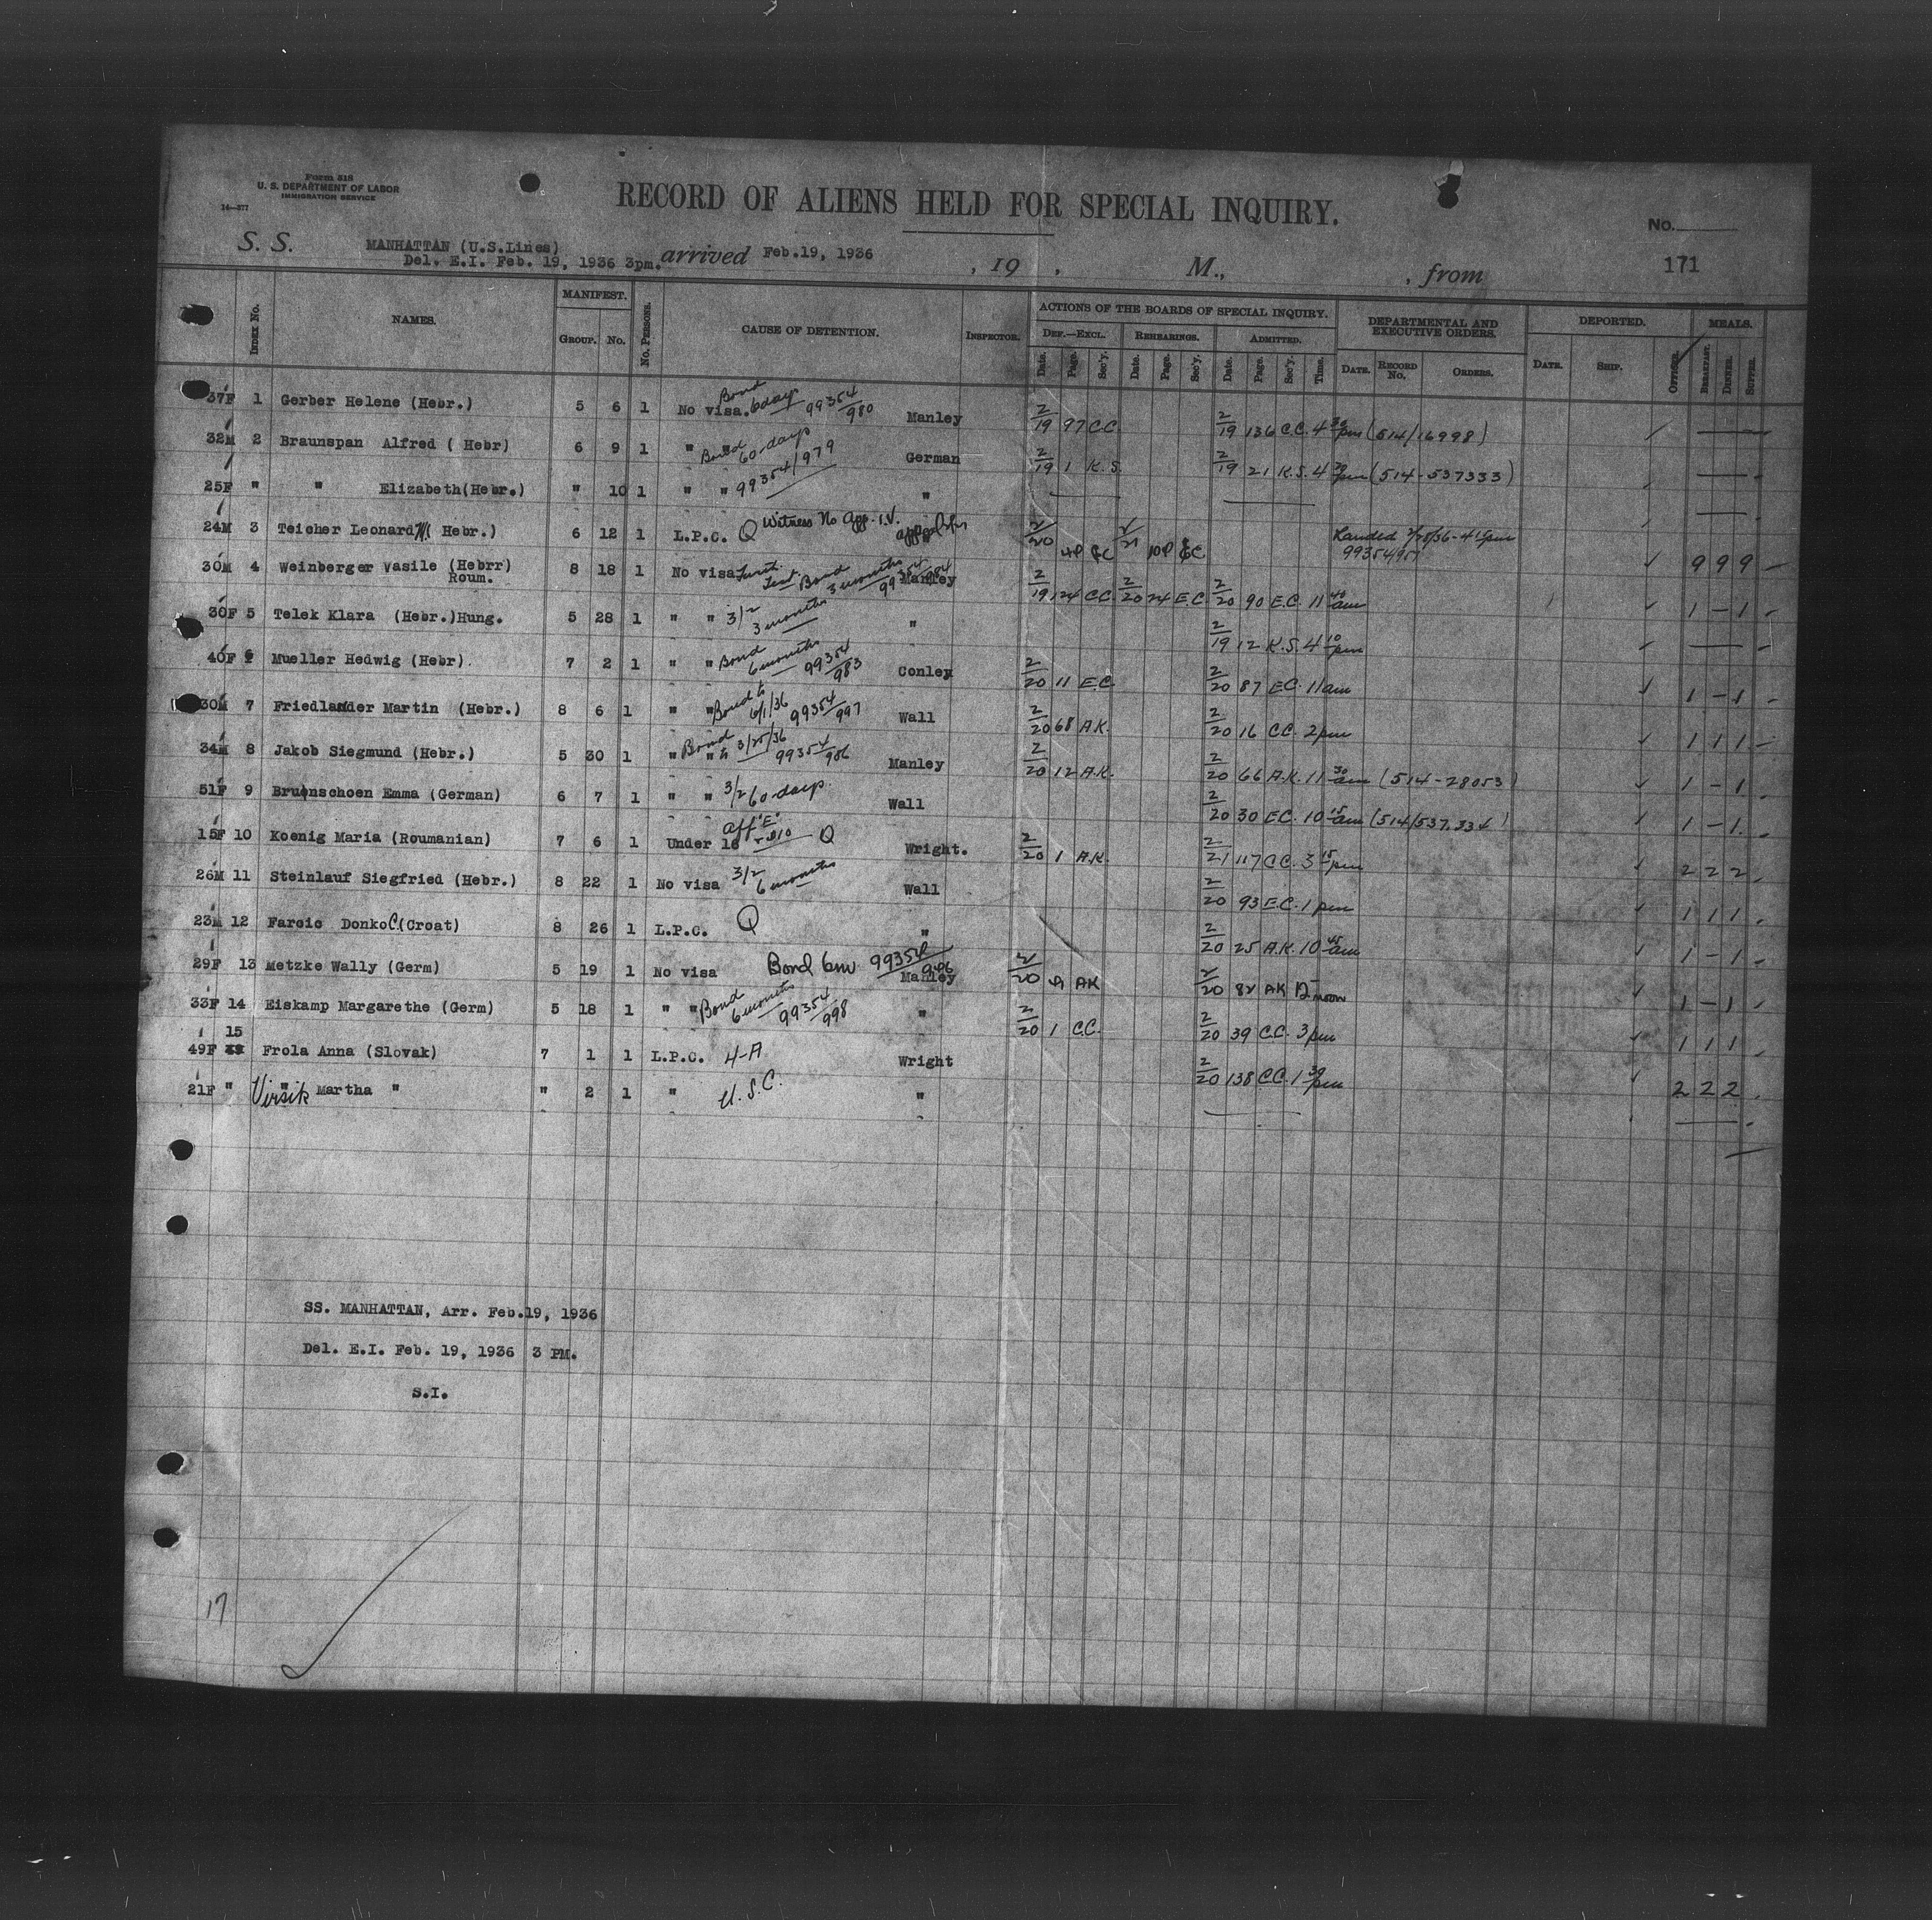 Form 518
U. S. DEPARTMENT OF LABOR
IMMIGRATION SERVICE
14—377
RECORD OF ALIENS HELD FOR SPECIAL INQUIRY.
No.
S. S. MANHATTAN (U.S.Lines) arrived Feb.19, 1936 , 19 , M., , from 171
Del. E.I. Feb. 19, 1936 3pm.
Index No. NAMES. MANIFEST. GROUP. NO. No. PERSONS. CAUSE OF DETENTION. INSPECTOR. ACTIONS OF THE BOARDS OF SPECIAL INQUIRY. DEPARTMENTAL AND EXECUTIVE ORDERS. DEPORTED. MEALS.
DEF.—EXCL. REHEARINGS. ADMITTED.
Date. Page. Sec'y. Date. Page. Sec'y. Date. Page. Sec'y. Time. DATE. RECORD No. ORDERS. DATE. SHIP. OFFICER. BREAKFAST. DINNER. SUPPER.
37F 1 Gerber Helene (Hebr.) 5 6 1 No visa. Bond 6days 99354/980 Manley 2/19 97 C.C. 2/19 136 C.C. 4 30 pm (514/16998)
32M 2 Braunspan Alfred ( Hebr) 6 9 1 " " Bond 60-days German 2/19 1 K.S. 2/19 21 K.S. 4 30 pm (514-537333)
25F " " Elizabeth(Hebr.) " 10 1 " " 99354/979 "
24M 3 Teicher Leonard ( Hebr.) 6 12 1 L.P.C. Q Witness No app. I.V. 2/20 2/21 Landed 4 15 pm 99354/951 9 9 9
30M 4 Weinberger Vasile (Hebrr) Roum. 8 18 1 No visa Bond 3 months 99354/984 Manley 2/19 124 C.C. 2/20 24 E.C. 2/20 90 E.C. 11 40 am 1 - 1
30F 5 Telek Klara (Hebr.)Hung. 5 28 1 " " 3/2 3 months " 2/19 12 K.S. 4 10 pm
40F 6 Mueller Hedwig (Hebr). 7 2 1 " " Bond 6 months 99354/983 Conley 2/20 11 E.C. 2/20 87 E.C. 11 am 1 - 1
30M 7 Friedlander Martin (Hebr.) 8 6 1 " " Bond to 6/1/36 99354/997 Wall 2/20 68 A.K. 2/20 16 C.C. 2 pm 1 1 1
34M 8 Jakob Siegmund (Hebr.) 5 30 1 " " Bond to 3/25/36 99354/986 Manley 2/20 12 A.K. 2/20 66 A.K. 11 30 am (514-28053) 1 - 1
51F 9 Brunnschoen Emma (German) 6 7 1 " " 3/2 60-days Wall 2/20 30 E.C. 10 15 am (514/537.334) 1 - 1
15F 10 Koenig Maria (Roumanian) 7 6 1 Under 16 Aff "E" Q Wright. 2/20 1 A.K. 2/21 117 C.C. 3 15 pm 2 2 2
26M 11 Steinlauf Siegfried (Hebr.) 8 22 1 No visa 3/2 6 months Wall 2/20 93 E.C. 1 pm 1 1 1
23M 12 Farcic Donko C.(Croat) 8 26 1 L.P.C. Q " 2/20 25 A.K. 10 45 am 1 - 1
29F 13 Metzke Wally (Germ) 5 19 1 No visa Bond 6m 99354/996 Manley 2/20 9 AK 2/20 82 AK 12 noon 1 - 1
33F 14 Eiskamp Margarethe (Germ) 5 18 1 " " Bond 6 months 99354/998 " 2/20 1 C.C. 2/20 39 C.C. 3 pm 1 1 1
49F 15 Frola Anna (Slovak) 7 1 1 L.P.C. 4-A Wright 2/20 138 C.C. 1 30 pm 2 2 2
21F " " Virsik Martha " " 2 1 " U.S.C. "
SS. MANHATTAN, Arr. Feb.19, 1936
Del. E.I. Feb. 19, 1936 3 PM.
S.I.
17